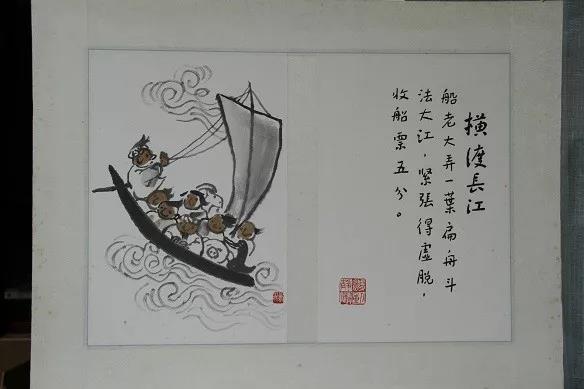 横渡長江
船老大弄一葉扁舟斗
法大江，緊張得虛脱，
收船票五分。